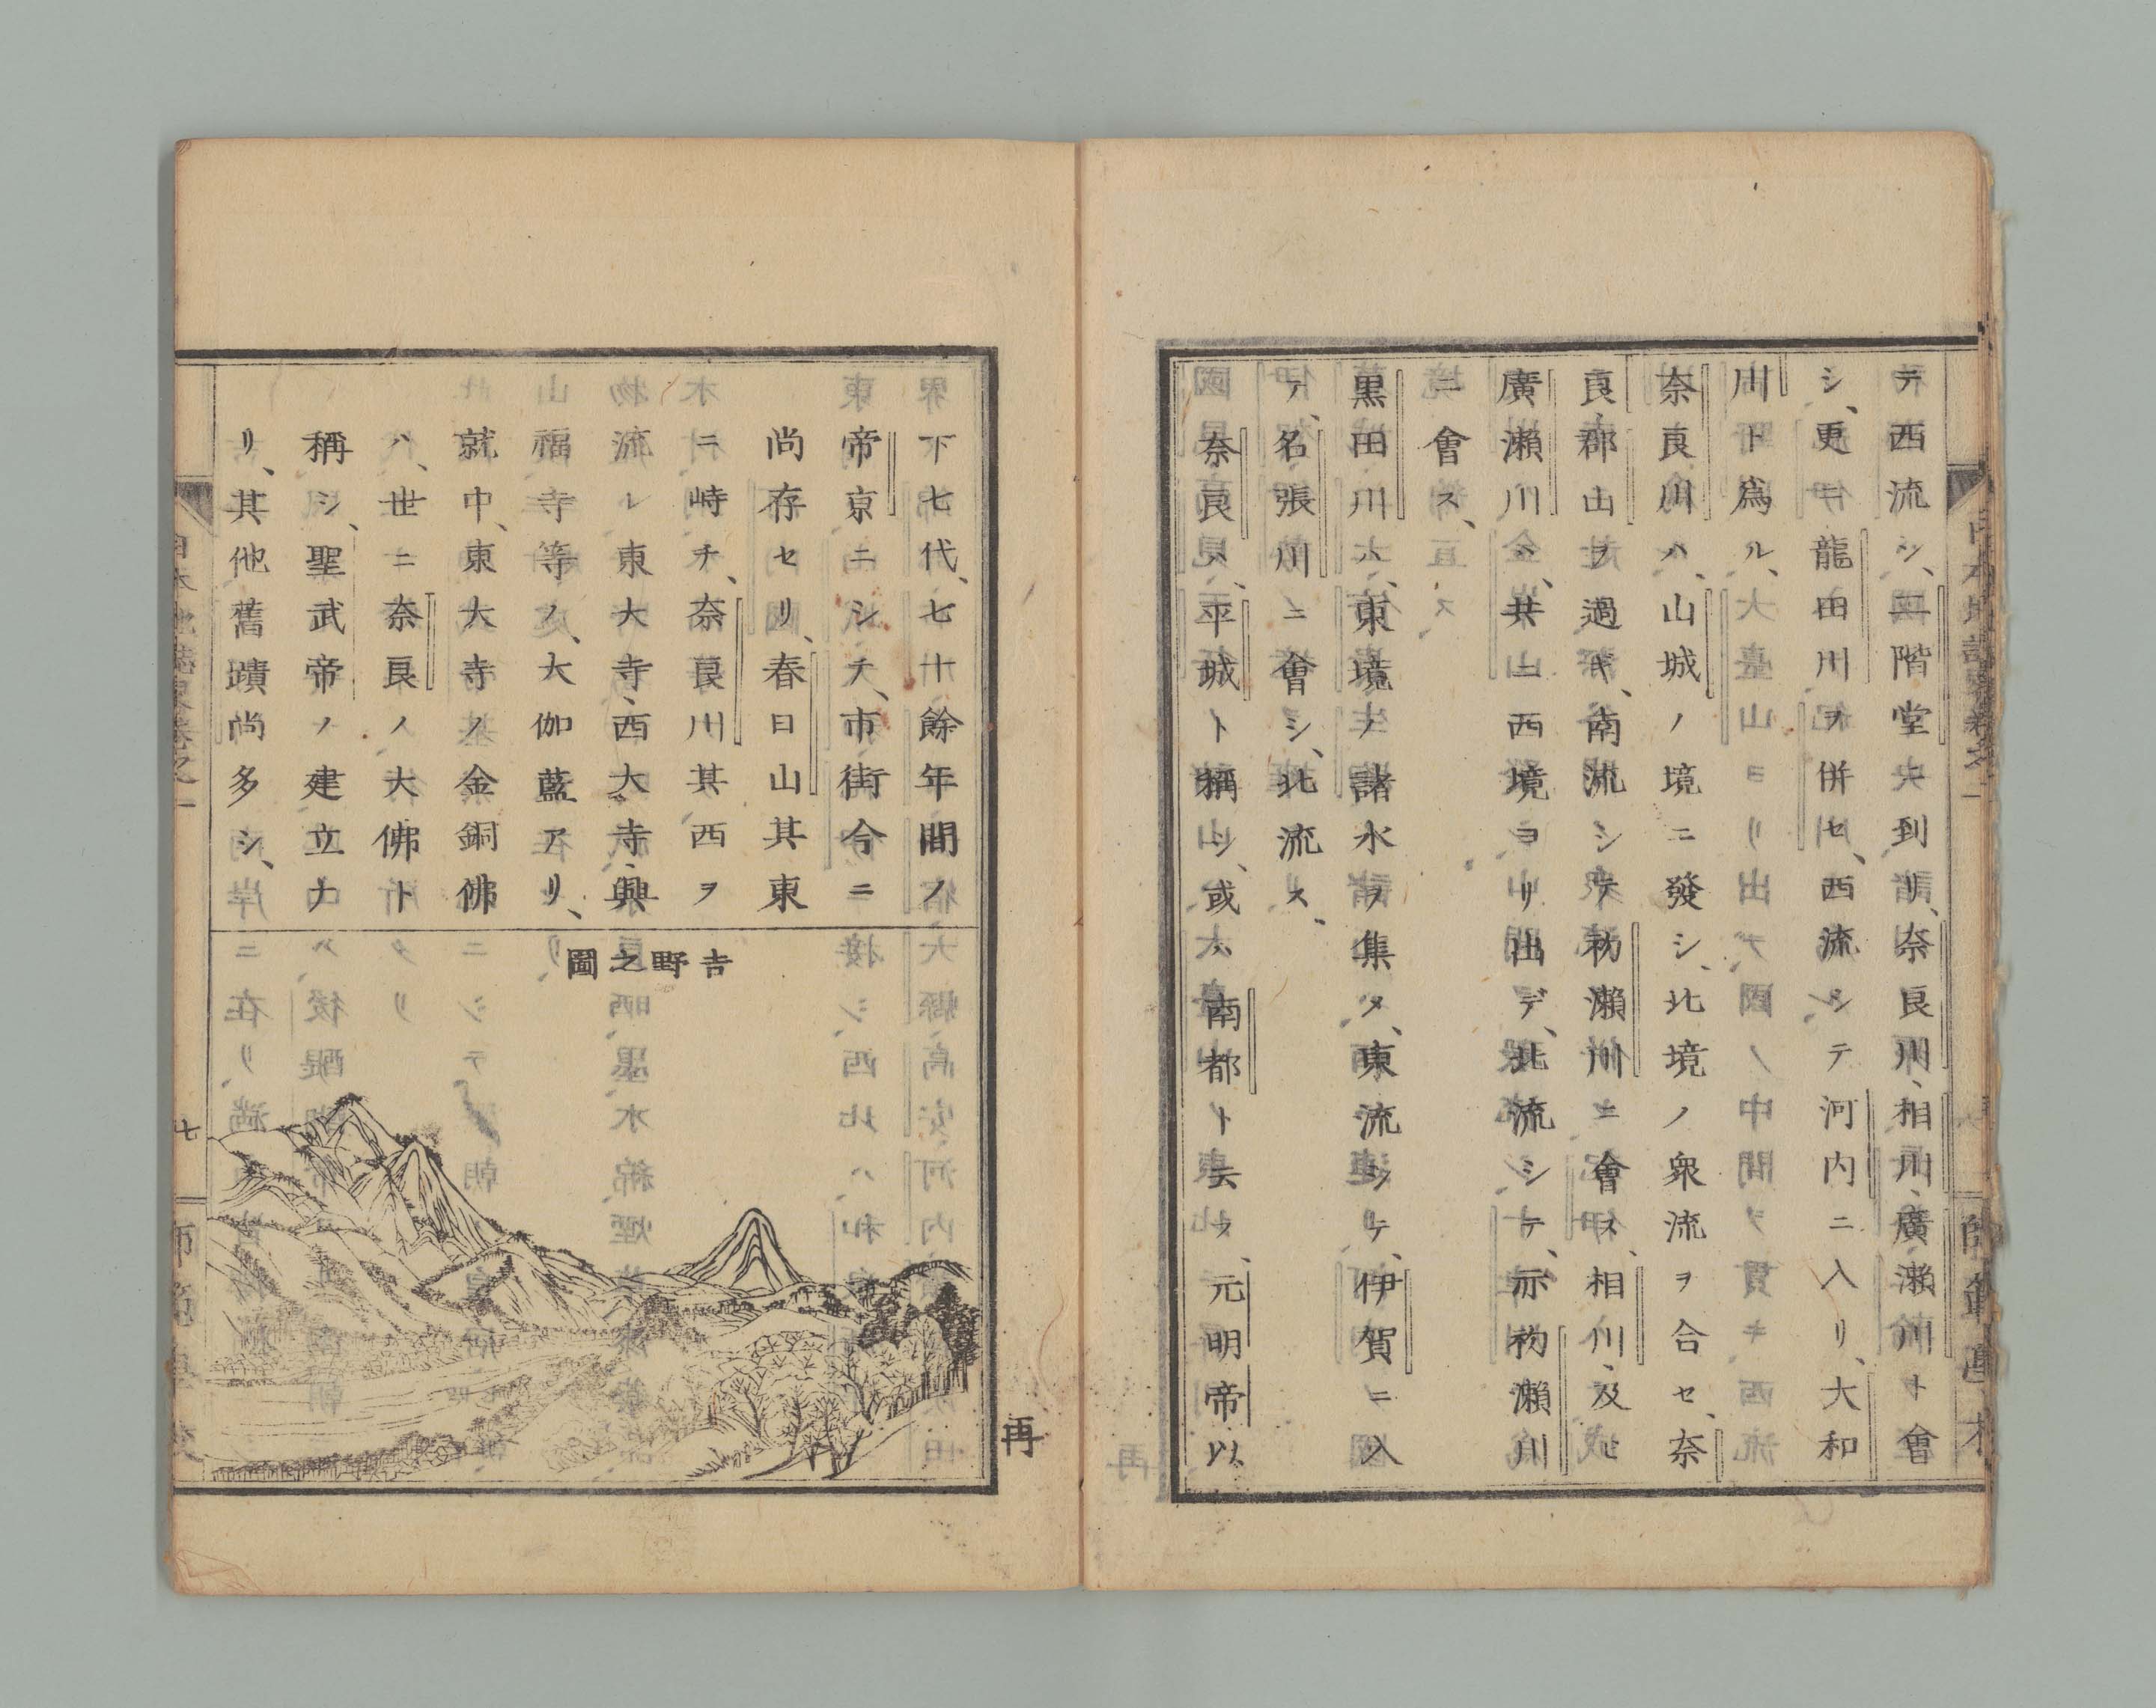 テ西流シ、二階堂ニ到リ、奈良川、相川、廣瀬川ト會
シ、更ニ龍田川ヲ併セ、西流シテ河内ニ入リ、大和
川ト爲ル、
奈良川ハ、山城ノ境ニ發シ、北境ノ衆流ヲ合セ、奈
良、郡山ヲ過ギ、南流シテ初瀬川ニ會ス、相川、及ビ
廣瀬川ハ、共ニ西境ヨリ出デ、北流シテ、亦初瀬川
ニ會ス、
黒田川ハ、東境ノ諸水ヲ集メ、東流シテ、伊賀ニ入
テ、名張川ニ會シ、北流ス、
奈良ハ、平城ト稱シ、或ハ南都ト云フ、元明帝以
下七代、七十餘年間ノ
帝京ニシテ、市街今ニ
尚存セリ、春日山其東
ニ峙チ、奈良川其西ヲ
流レ、東大寺、西大寺、興
福寺等ノ、大伽藍アリ、
就中、東大寺ノ金銅佛
ハ、世ニ奈良ノ大佛ト
稱シ、聖武帝ノ建立ナ
リ、其他舊蹟尚多シ、
吉野之圖
再
日本地誌略卷之一
七
師範學校